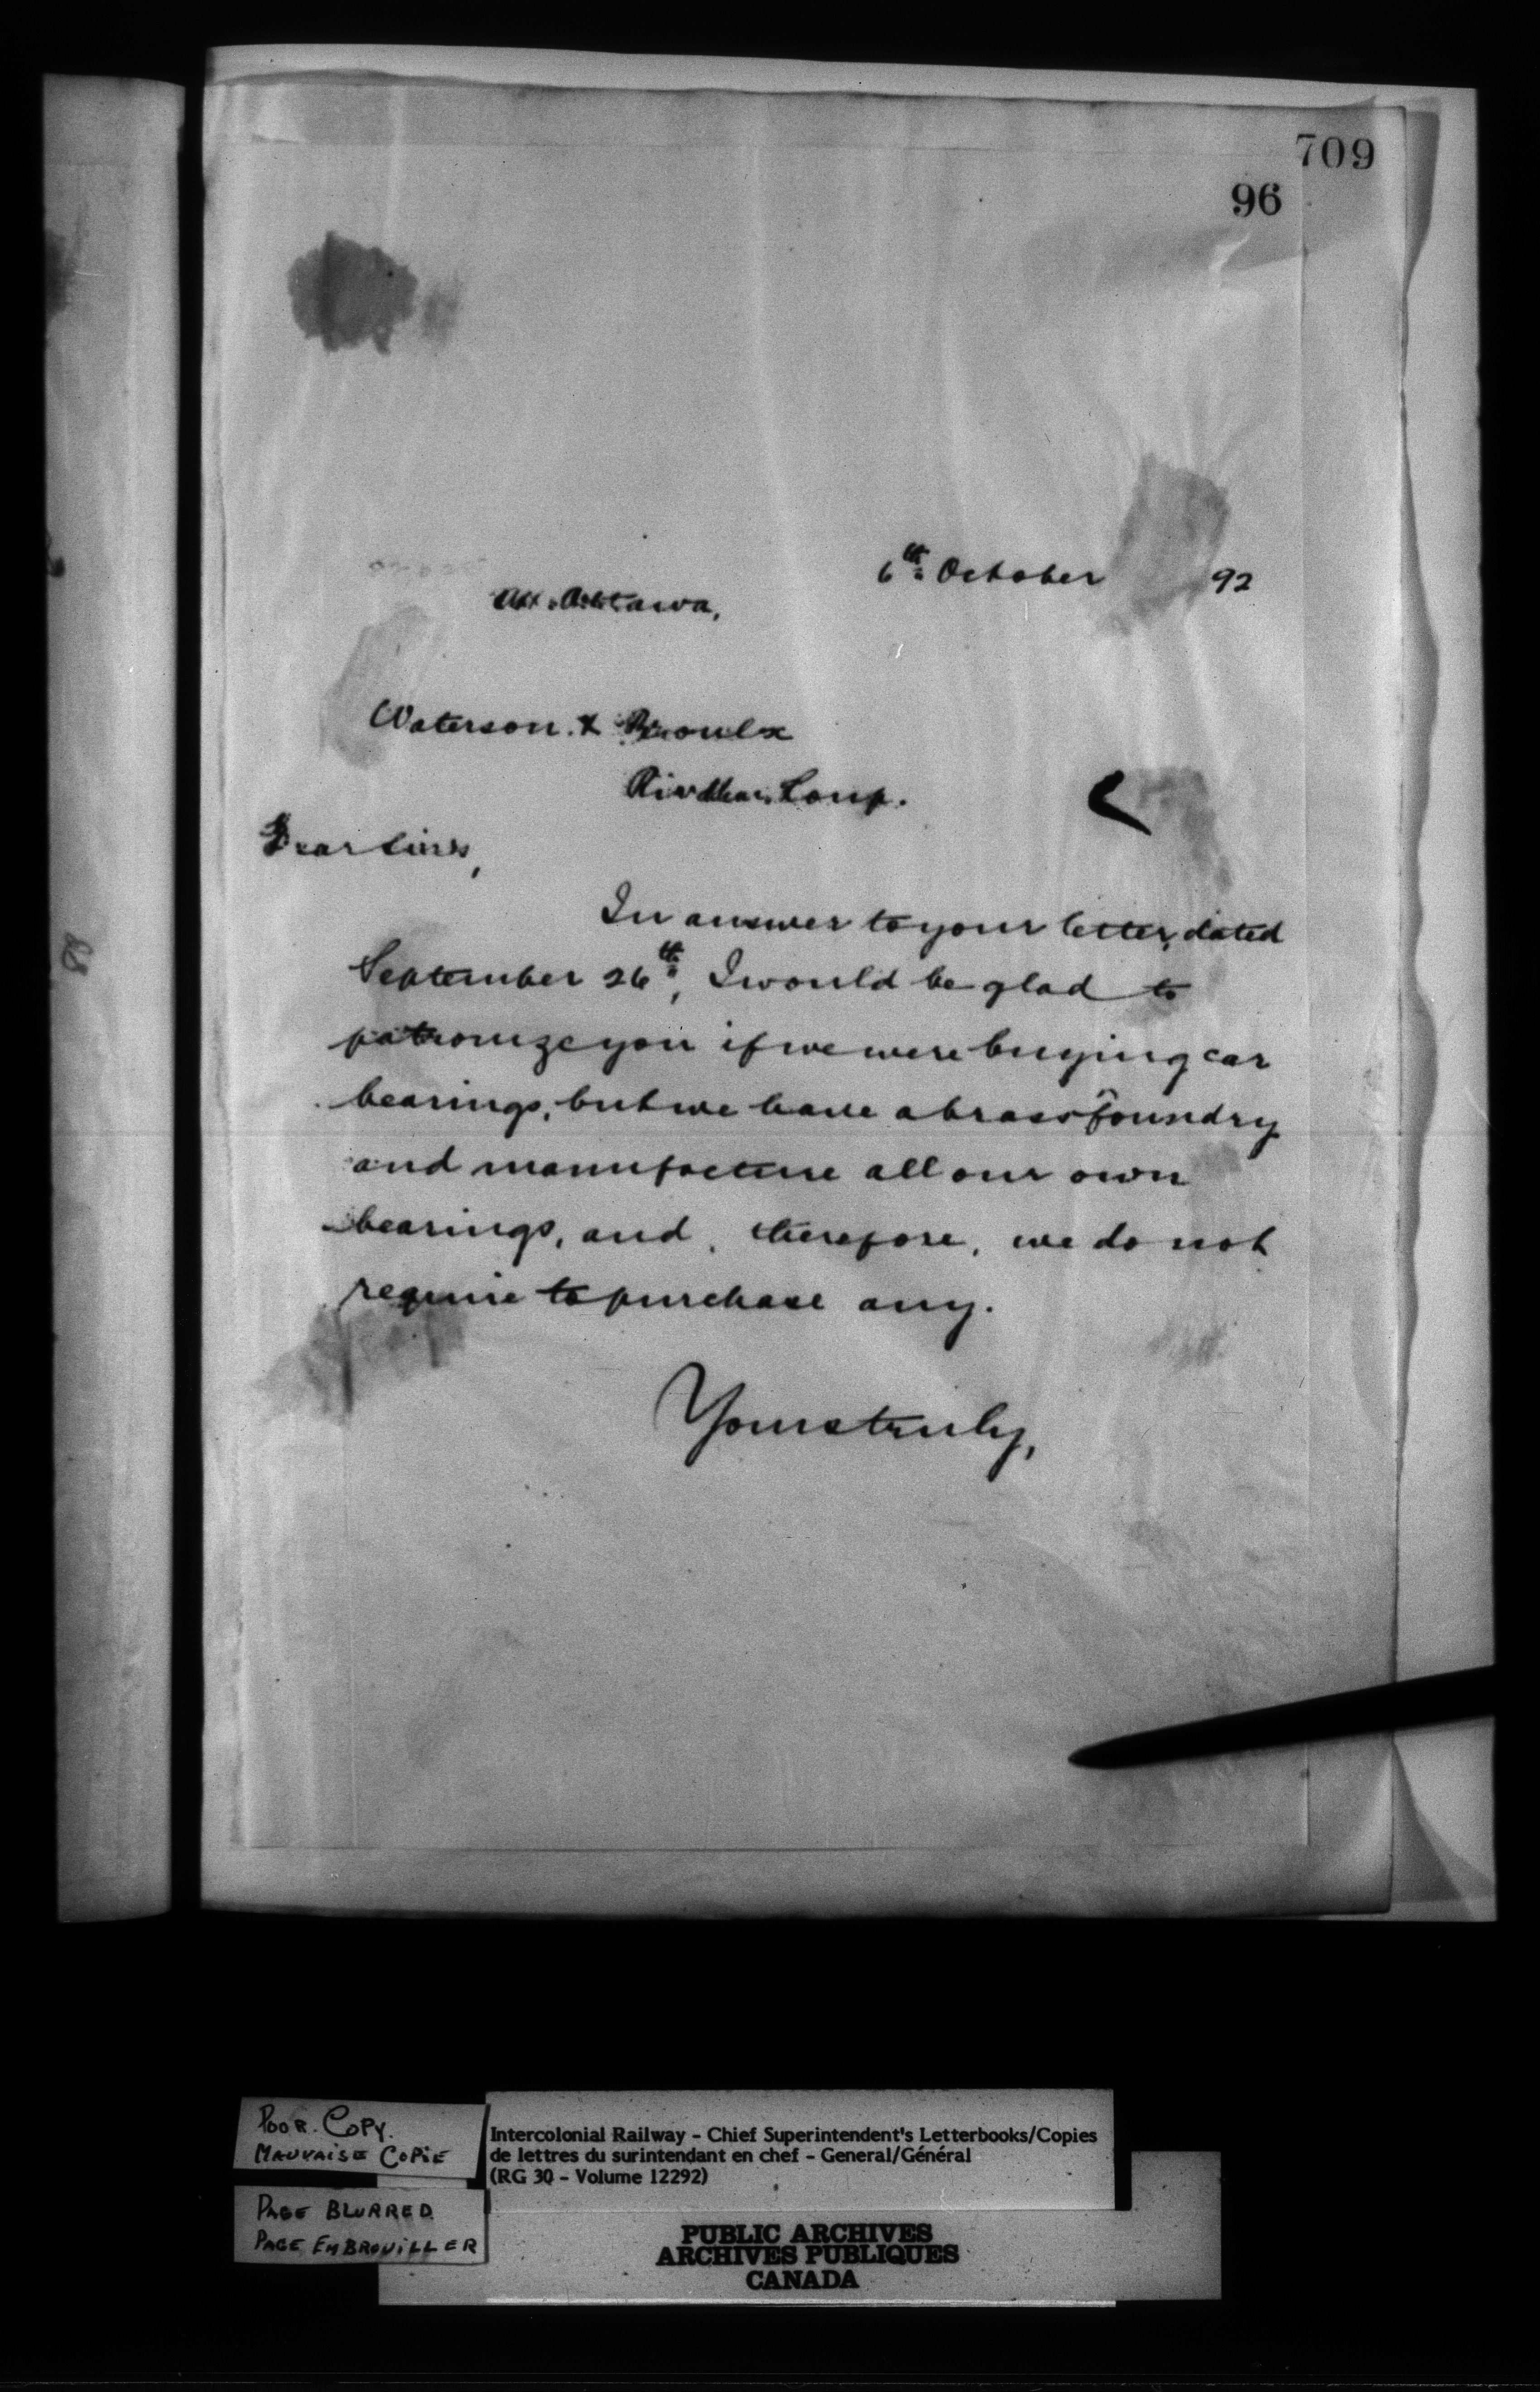 709
96
6th October 92
At Ottawa,
Waterson & Proulx
Riv du Loup.
Dear Sirs,
In answer to your letter, dated
September 26th, I would be glad to
patronize you if we were buying car
bearings, but we have a brass foundry
and manufacture all our own
bearings, and, therefore, we do not
require to purchase any.
Yours truly,
POOR. COPY.
MAUVAISE COPIE
PAGE BLURRED
PAGE EMBROUILLER
Intercolonial Railway - Chief Superintendent's Letterbooks/Copies
de lettres du surintendant en chef - General/Général
(RG 30 - Volume 12292)
PUBLIC ARCHIVES
ARCHIVES PUBLIQUES
CANADA